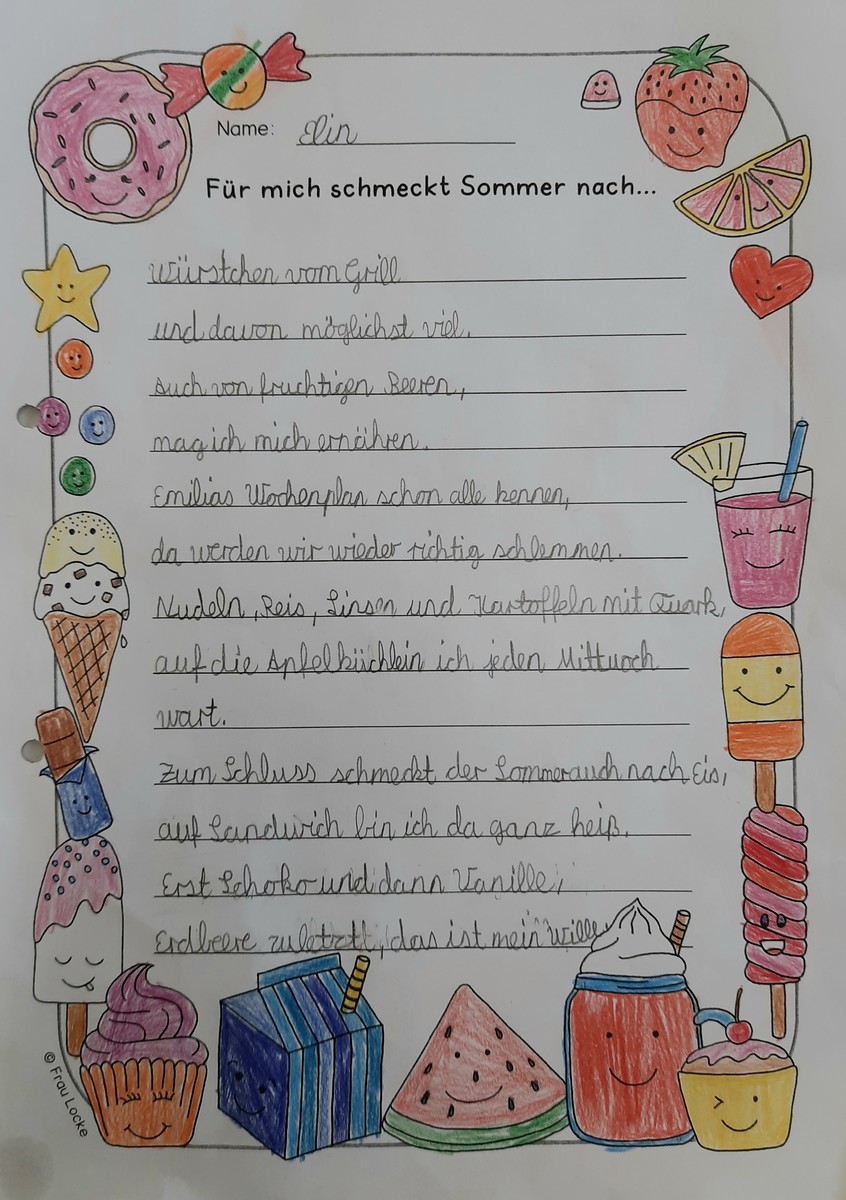 Name: Elin
Für mich schmeckt Sommer nach...
Würstchen vom Grill
und davon möglichst viel.
Auch von fruchtigen Beeren,
mag ich mich ernähren.
Emilias Wochenplan schon alle kennen,
da werden wir wieder richtig schlemmen.
Nudeln, Reis, Linsen und Kartoffeln mit Quark,
auf die Apfelküchlein ich jeden Mittwoch
wart.
Zum Schluss schmeckt der Sommer auch nach Eis,
auf Sandwich bin ich da ganz heiß.
Erst Schoko und dann Vanille,
Erdbeere zuletzt, das ist mein Wille
© Frau Locke